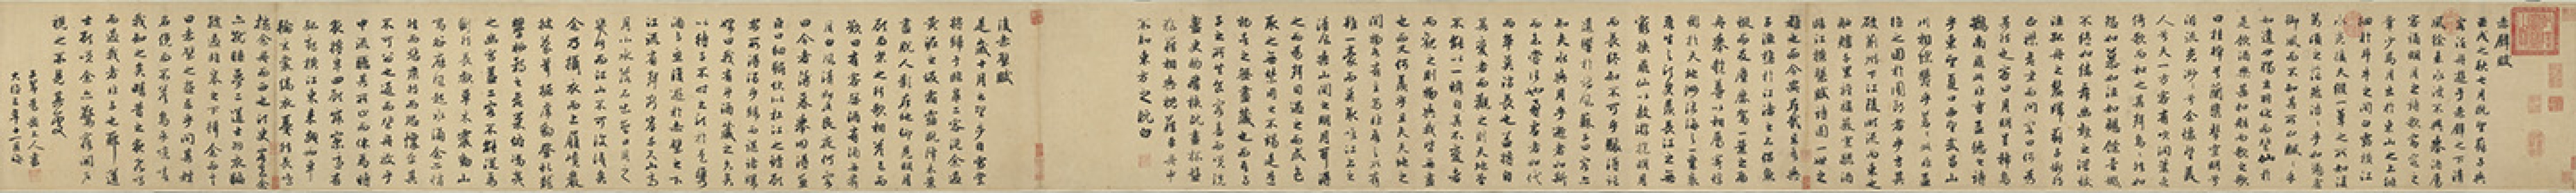 赤壁賦
壬戌之秋七月既望蘇子與
客泛舟遊於赤壁之下清
風徐來水波不興舉酒屬
客誦明月之詩歌窈窕之
章少焉月出於東山之上徘
徊於斗牛之間白露橫江
水光接天縱一葦之所如凌
萬頃之茫然浩浩乎如馮虛
御風而不知其所止飄飄乎
如遺世獨立羽化而登仙於
是飲酒樂甚扣舷而歌之歌
曰桂棹兮蘭槳擊空明兮
泝流光渺渺兮余懷望美
人兮天一方客有吹洞簫者
倚歌而和之其聲嗚嗚然如
怨如慕如泣如訴餘音嫋嫋
不絕如縷舞幽壑之潛蛟
泣孤舟之嫠婦蘇子愀然
正襟危坐而問客曰何為
其然也客曰月明星稀烏
鵲南飛此非曹孟德之詩
乎東望夏口西望武昌山
川相繆鬱乎蒼蒼此非孟
德之困於周郎者乎方其
破荊州下江陵順流而東也
舳艫千里旌旗蔽空釃酒
臨江橫槊賦詩固一世之
雄也而今安在哉況吾與
子漁樵於江渚之上侶魚
蝦而友麋鹿駕一葉之扁
舟舉匏樽以相屬寄蜉
蝣於天地渺滄海之一粟
哀吾生之須臾羨長江之無
窮挾飛仙以遨遊抱明月
而長終知不可乎驟得託
遺響於悲風蘇子曰客亦
知夫水與月乎逝者如斯
而未嘗往也盈虛者如代
而卒莫消長也蓋將自
其變者而觀之則天地曾
不能以一瞬自其不變者
而觀之則物與我皆無盡
也而又何羨乎且夫天地之
間物各有主苟非吾之所有
雖一毫而莫取惟江上之
清風與山間之明月耳得
之而為聲目遇之而成色
取之無禁用之不竭是造
物者之無盡藏也而吾與
子之所共食客喜而笑洗
盞更酌肴核既盡杯盤
狼籍相與枕藉乎舟中
不知東方之既白
後赤壁賦
是歲十月之望步自雪堂
將歸于臨皋二客從余過
黃泥之坂霜露既降木葉
盡脫人影在地仰見明月
顧而樂之行歌相答已而
歎曰有客無酒有酒無肴
月白風清如此良夜何客
曰今者薄暮舉網得魚
巨口細鱗狀似松江之鱸顧
安所得酒乎歸而謀諸婦
婦曰我有斗酒藏之久矣
以待子不時之須於是攜
酒與魚復遊於赤壁之下
江流有聲斷岸千尺山高
月小水落石出曾日月之
幾何而江山不可復識矣
余乃攝衣而上履巉巖
披蒙茸踞虎豹登虬龍
攀栖鶻之危巢俯馮夷
之幽宮蓋二客不能從焉
劃然長嘯草木震動山
鳴谷應風起水涌余亦悄
然而悲肅然而恐凜乎其
不可留也反而登舟放乎
中流聽其所止而休焉時
夜將半四顧寂寥適有
孤鶴橫江東來翅如車
輪玄裳縞衣戛然長鳴
掠余舟而西也須臾客去余
亦就睡夢二道士羽衣翩
躚過臨皋之下揖余而言
曰赤壁之遊樂乎問其姓
名俛而不答嗚呼噫嘻
我知之矣疇昔之夜飛鳴
而過我者非子也耶道
士顧笑余亦驚寤開戶
視之不見其處